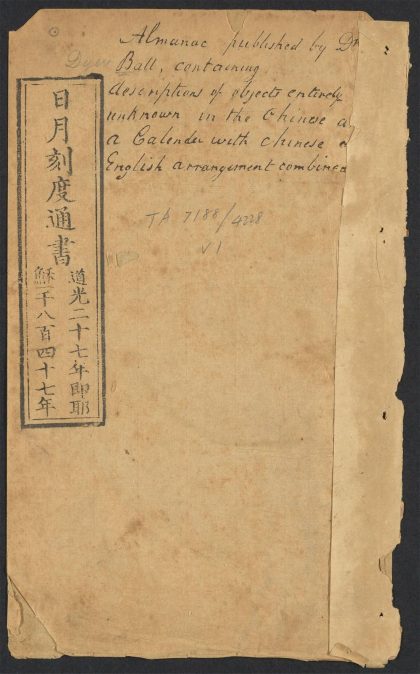 Almanac published by Dr
Dyer
Ball, containing
descriptions of objects entirely
unknown in the Chinese a
a Calender with chinese &
English arrangement combined
TA 7188/4228
V1
日月刻度通書
道光二十七年即耶
穌一千八百四十七年